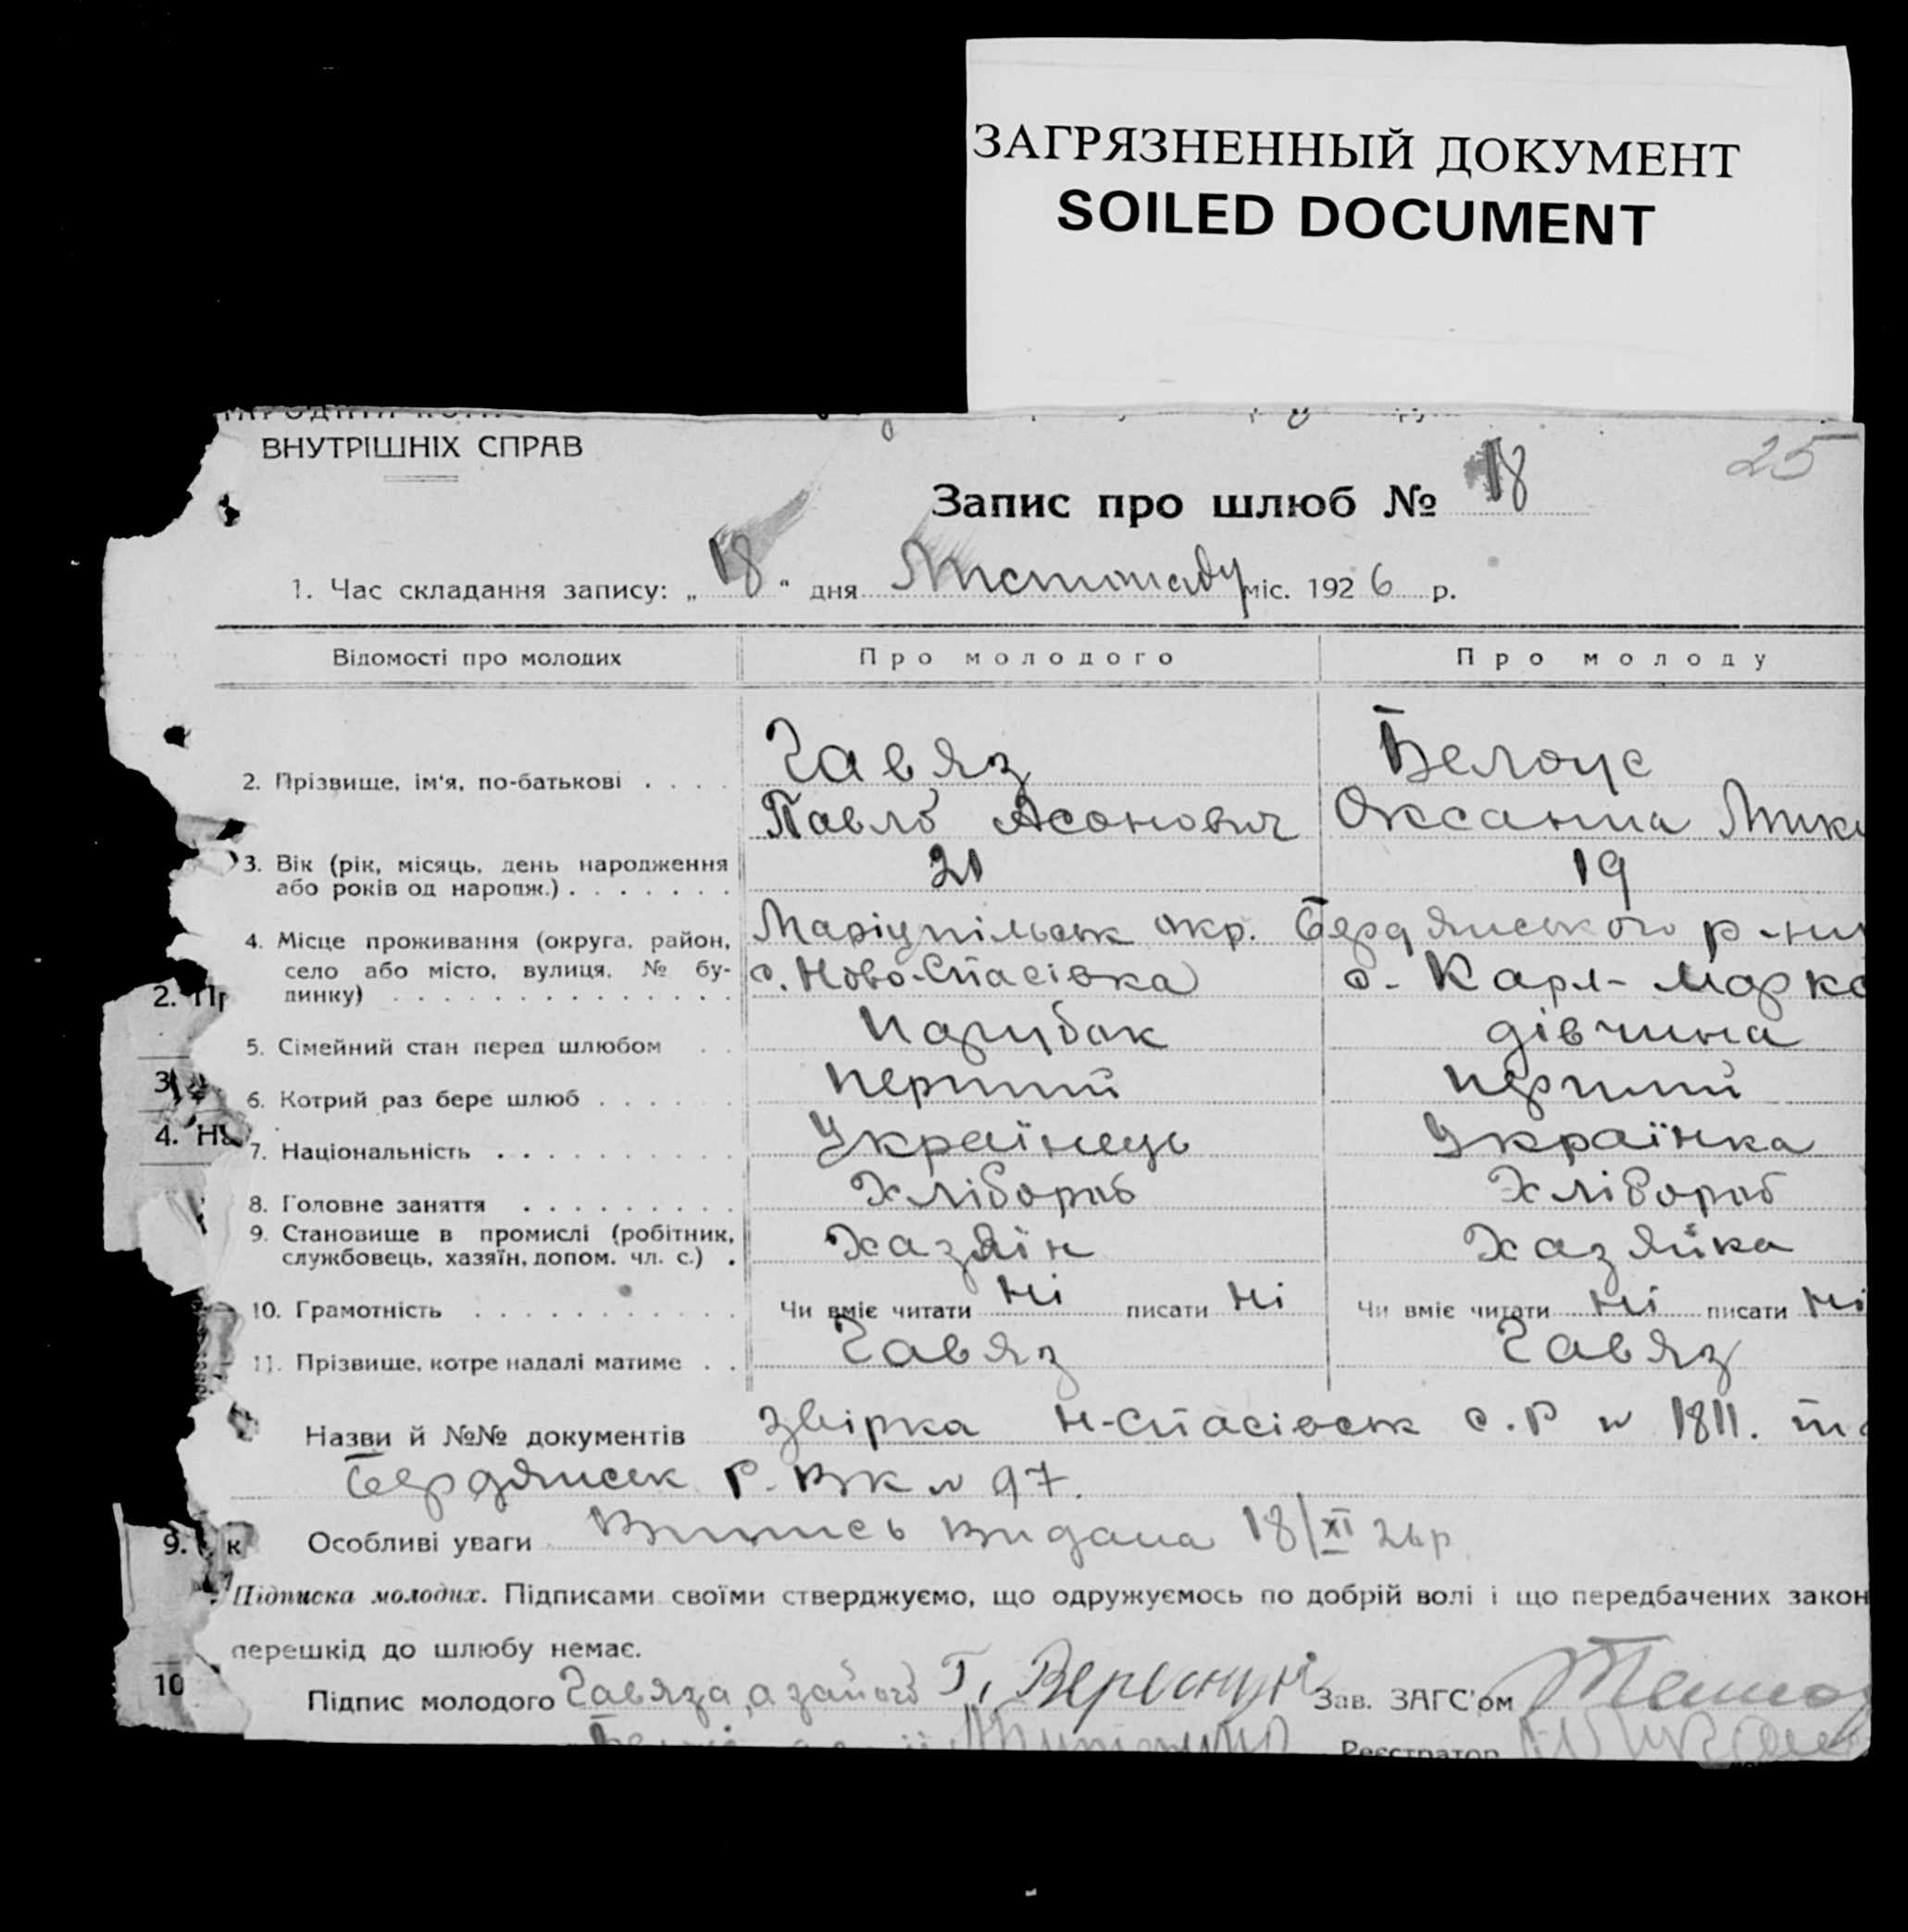 ЗАГРЯЗНЕННЫЙ ДОКУМЕНТ
SOILED DOCUMENT
ВНУТРІШНІХ СПРАВ
25
Запис про шлюб № 18
1. Час складання запису: „ 18 “ дня Листопаду міс. 1926 р.
Відомості про молодих Про молодого Про молоду
2. Прізвище, ім'я, по-батькові . . . . Гавяз Белоус
Павло Асонович Оксанна Мики
3. Вік (рік, місяць, день народження 21 19
або років од народж.) . . . . . . .
4. Місце проживання (округа, район, Маріупільськ окр. Бердянського р-ни
село або місто, вулиця, № бу- с. Ново-Спасівка с. Карл-Маркс
динку) . . . . . . . . . . . . . .
2. Пр
5. Сімейний стан перед шлюбом . . Парубок дівчина
3
6. Котрий раз бере шлюб . . . . . . перший перший
4. На
7. Національність . . . . . . . . . . Українець Українка
8. Головне заняття . . . . . . . . . Хлібороб Хлібороб
9. Становище в промислі (робітник, Хазяїн Хазяйка
службовець, хазяїн, допом. чл. с.) .
10. Грамотність . . . . . . . . . . . Чи вміє читати Ні писати Ні Чи вміє читати Ні писати Ні
11. Прізвище, котре надалі матиме . . Гавяз Гавяз
Назви й №№ документів Звірка Н-Спасівськ с.Р № 1811. та
Бердянськ Р. ВК № 97.
9. к Особливі уваги Випись видана 18/XI 26 р
Підписка молодих. Підписами своїми стверджуємо, що одружуємось по добрій волі і що передбачених закон
перешкід до шлюбу немає.
10
Підпис молодого Гавяза, а за його Зав. ЗАГС'ом
Реєстратор